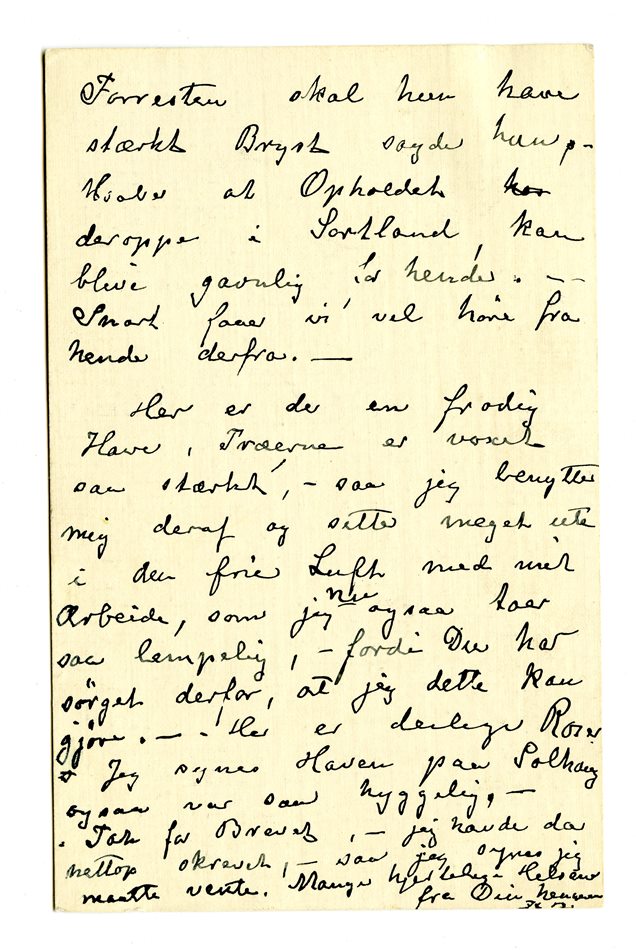 Forresten skal hun have
stærkt Bryst sagde hun, -
Haaber at Opholdet
deroppe i Sortland, kan
blive gavnlig for hende. - -
Snart faaer vi vel höre fra
hende derfra. -
Her er de en frodig
Have, Træerne er voxet
saa stærkt, - saa jeg benytter
mig deraf og sitter meget ute
i den frie Luft med mit
Arbeide, som jeg nu ogsaa taer
saa lempelig, - fordi Du har
sörget derfor, at jeg dette kan
gjöre. - Her er deilige Roser
Jeg synes Haven paa Solhaug
ogsaa var saa hyggelig, -
Tak for Brevet, - jeg havde da
nettop skrevet, - saa jeg synes jeg
maatte vente. Mange hjertelige Helsener
fra Din